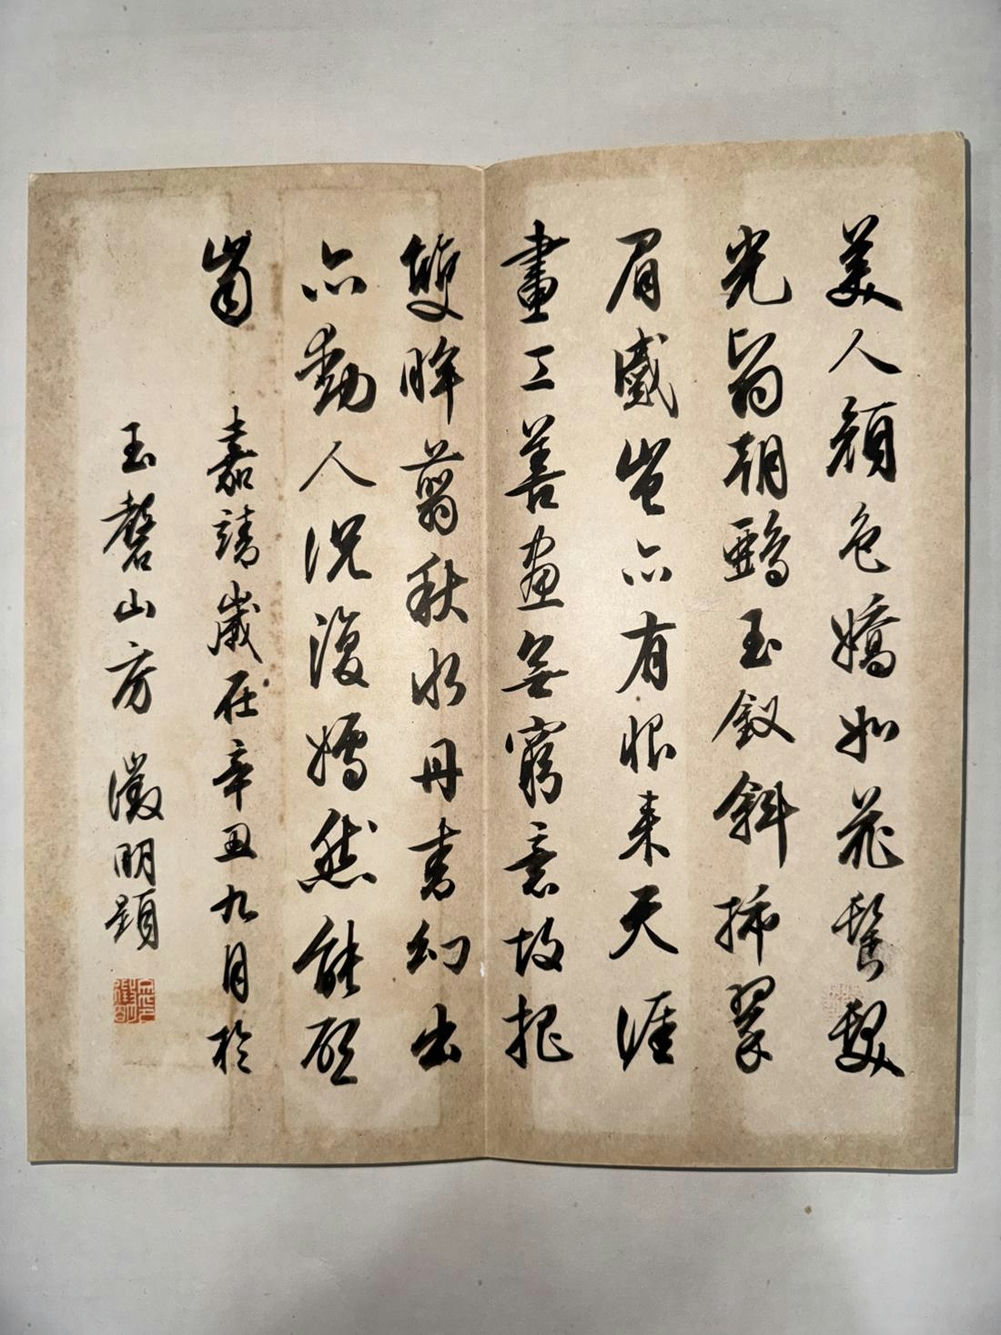 美人顏色嬌如花鬢髮
光翁朝鵶玉釵斜插翠
眉慽豈亦有恨來天涯
畫工善畫無窮意故把
雙眸翦秋水丹青幻出
亦動人況復嫣然能啟
齒 嘉靖歲在辛丑九月於
玉磬山房 徵明題